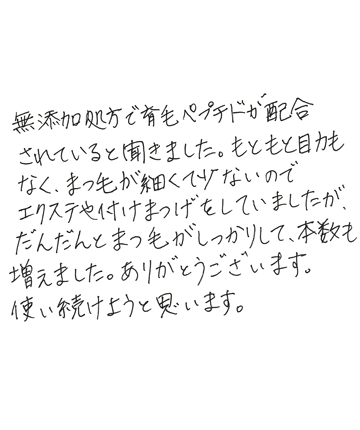 無添加処方で育毛ペプチドが配合
されていると聞きました。もともと目力も
なく、まつ毛が細くて少ないので
エクステや付けまつげをしていましたが、
だんだんとまつ毛がしっかりして、本数も
増えました。ありがとうございます。
使い続けようと思います。